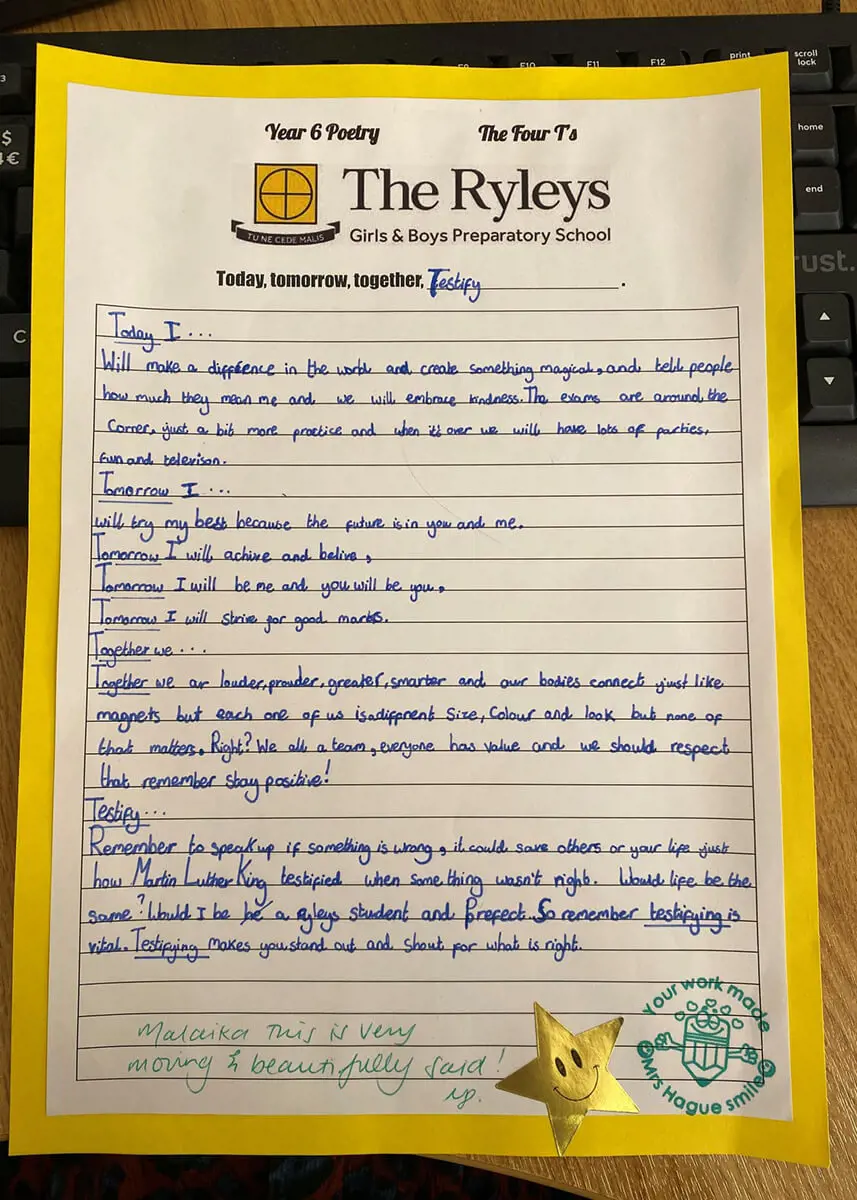 F9 F10 F11 F12 print scroll lock
3
$
4€
home
end
C
Trust.
Year 6 Poetry The Four T's
The Ryleys
TU NE CEDE MALIS
Girls & Boys Preparatory School
Today, tomorrow, together, Testify.
Today I ...
Will make a diffrence in the world and create something magical, and tell people
how much they mean me and we will embrace kindness. The exams are around the
Corner, just a bit more practice and when it's over we will have lots of parties,
fun and televison.
Tomorrow I ...
will try my best because the future is in you and me.
Tomorrow I will achive and belive,
Tomorrow I will be me and you will be you,
Tomorrow I will strive for good marks.
Together we ...
Together we ar louder, prouder, greater, smarter and our bodies connect just like
magnets but each one of us is a diffrent Size, Colour and look but none of
that matters. Right? We all a team, everyone has value and we should respect
that remember stay positive!
Testify...
Remember to speak up if something is wrong, it could save others or your life just
how Martin Luther King testified when something wasn't right. Would life be the
same? Would I be be a ryleys student and Prefect. So remember testifying is
vital. Testifying makes you stand out and shout for what is right.
Malaika this is very
moving & beautifully said!
Your work made
Mrs Hague smile